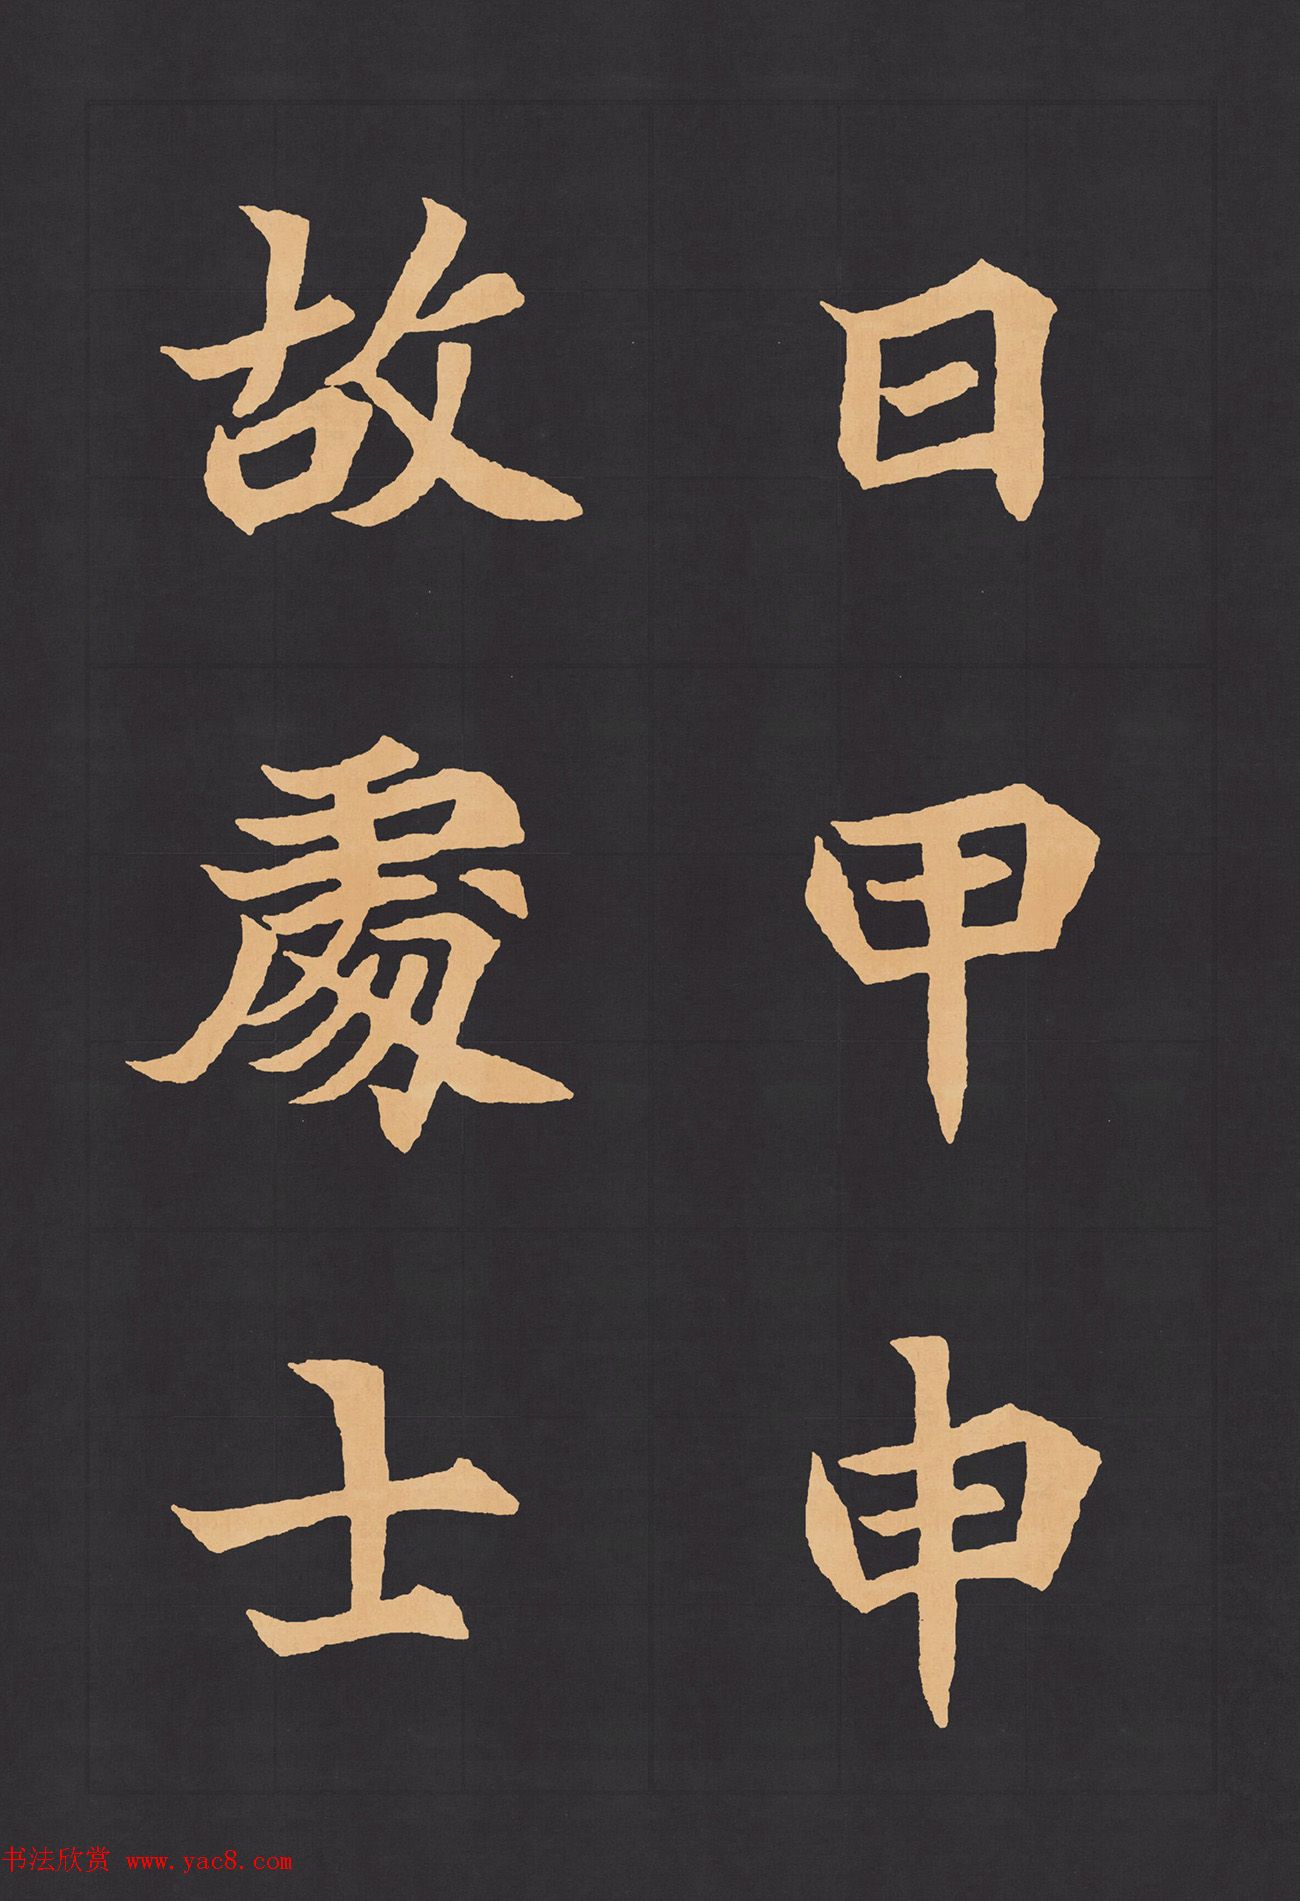 日甲申
故處士
书法欣赏 www.yac8.com